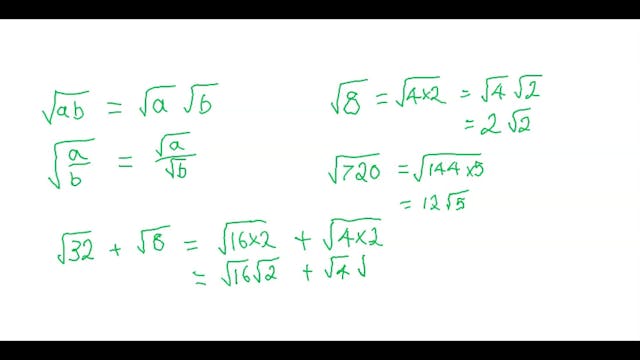 √ab = √a √b
√(a/b) = √a/√b
√8 = √4×2 = √4 √2
= 2 √2
√720 = √144×5
= 12√5
√32 + √8 = √16×2 + √4×2
= √16√2 + √4 √